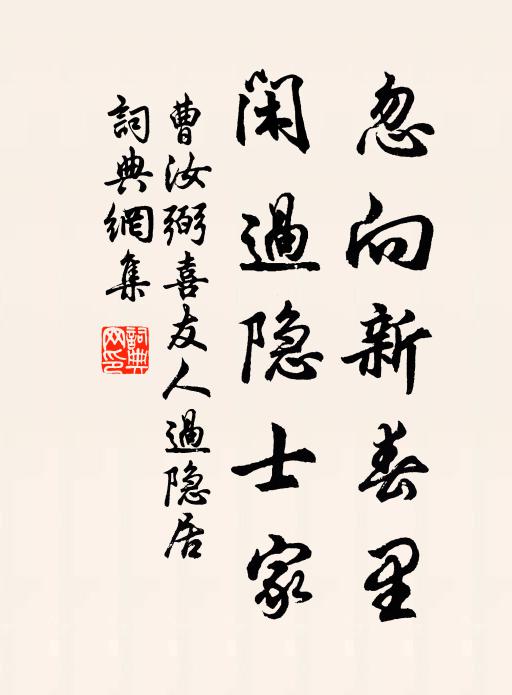 忽向新春里
闲過隐士家
曹汝弼喜友人過隐居
詞典網集
詞典網印